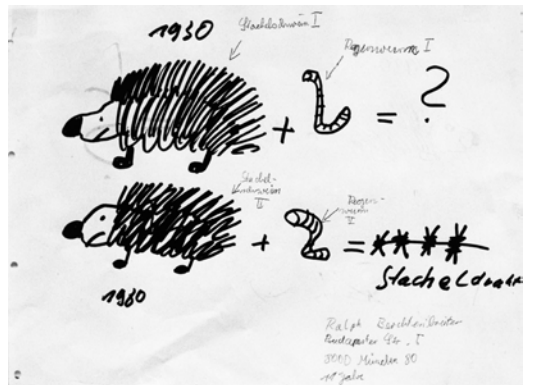 1930
Stachelschwein I
Regenwurm I
+ = ?
Stachel-
schwein
II
Regen-
wurm
+ =
Stacheldraht
1980
Ralph
Budapester Str. 5
8000 München 80
11 Jahre